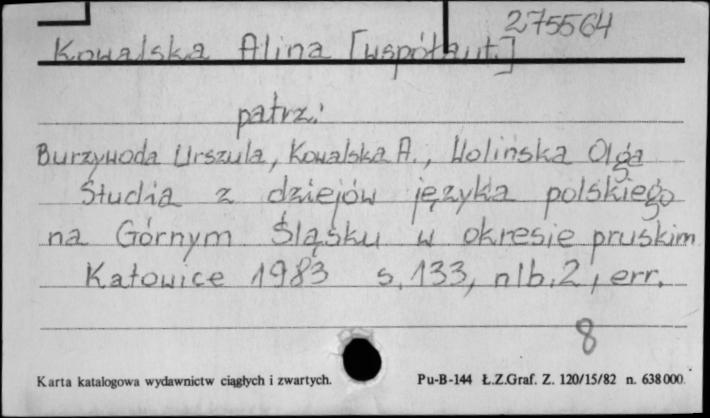 275564
Kowalska Alina [współaut.]
patrz:
Burzywoda Urszula, Kowalska A., Wolińska Olga
Studia z dziejów języka polskiego
na Górnym Śląsku w okresie pruskim
Katowice 1983 s. 133, nlb. 2, err.
8
Karta katalogowa wydawnictw ciągłych i zwartych. Pu-B-144 Ł.Z.Graf. Z. 120/15/82 n. 638000.